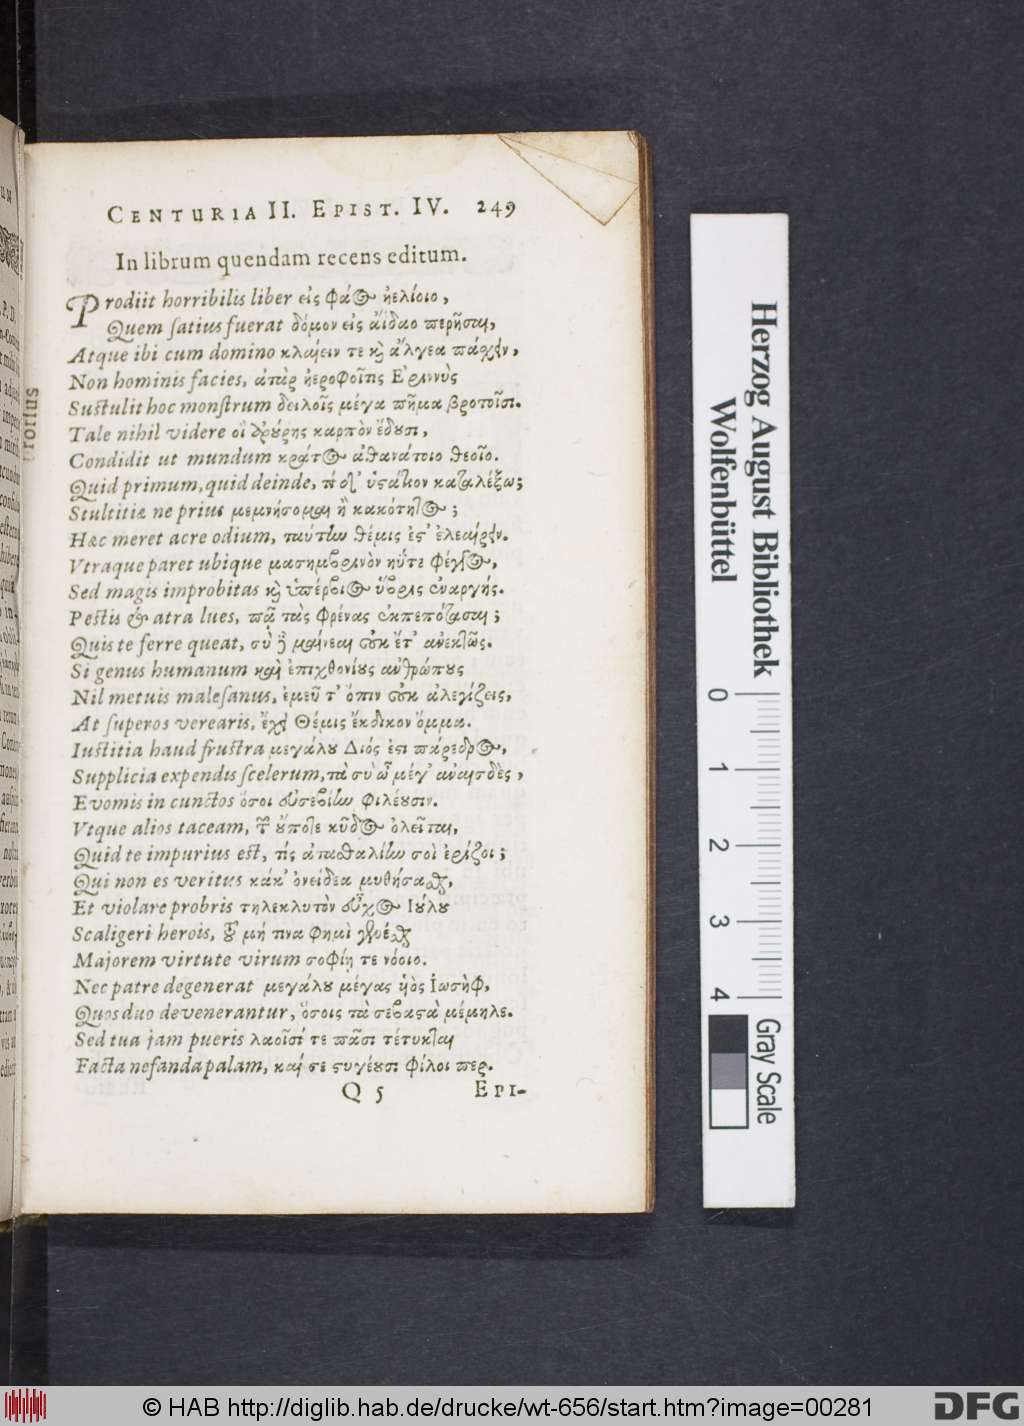 CENTURIA II. EPIST. IV. 249
In librum quendam recens editum.
Prodiit horribilis liber εἰς φάος ἠελίοιο,
Quem satius fuerat δόμον εἰς ἄϊδαο περῆσαι,
Atque ibi cum domino κλαίειν τε καὶ ἄλγεα πάσχειν,
Non hominis facies, ἀτὰρ ἠεροφοῖτις Ἐριννὺς
Sustulit hoc monstrum δειλοῖς μέγα πῆμα βροτοῖσι.
Tale nihil videre οἳ ἀρούρης καρπὸν ἔδουσι,
Condidit ut mundum κράτος ἀθανάτοιο θεοῖο.
Quid primum, quid deinde, τί δ' ὑστάτιον καταλέξω;
Stultitiæ ne prius μεμνήσομαι ἢ κακότητος;
Hæc meret acre odium, ταύτην θέμις ἐστ' ἐλεαίρειν.
Vtraque paret ubique μεσημβρινὸν ἠΰτε φέγγος,
Sed magis improbitas καὶ ὑπέρβιος ὕβρις ἐναργής.
Pestis & atra lues, πᾶ τὰς φρένας ἐκπεπότασαι;
Quis te ferre queat, σὺ δὲ μαίνεαι οὐκ ἔτ' ἀνεκτῶς.
Si genus humanum καὶ ἐπιχθονίους ἀνθρώπους
Nil metuis malesanus, ἐμεῦ τ' ὄπιν οὐκ ἀλεγίζεις,
At superos verearis, ἔχει Θέμις ἔκδικον ὄμμα.
Iustitia haud frustra μεγάλου Διός ἐστι πάρεδρος,
Supplicia expendis scelerum, τὰ σὺ ὦ μέγ' ἀναισδὲς,
Evomis in cunctos ὅσοι εὐσεβίην φιλέουσιν.
Vtque alios taceam, τῶν οὔποτε κῦδος ὀλεῖται,
Quid te impurius est, τίς ἀτασθαλίην σοὶ ἐρίζοι;
Qui non es veritus κάκ' ὀνείδεα μυθήσασθαι,
Et violare probris τηλεκλυτὸν εὖχος Ἰούλου
Scaligeri herois, οὗ μή τινα φημὶ γενέσθαι
Majorem virtute virum σοφίῃ τε νόοιο.
Nec patre degenerat μεγάλου μέγας υἱὸς Ἰωσὴφ,
Quos duo devenerantur, ὅσοις τὰ σεβαστὰ μέμηλε.
Sed tua jam pueris λαοῖσί τε πᾶσι τέτυκται
Facta nefanda palam, καί σε στυγέουσι φίλοι περ.
Q 5 EPI-
Herzog August Bibliothek
Wolfenbüttel
0 1 2 3 4
Gray Scale
© HAB http://diglib.hab.de/drucke/wt-656/start.htm?image=00281
DFG